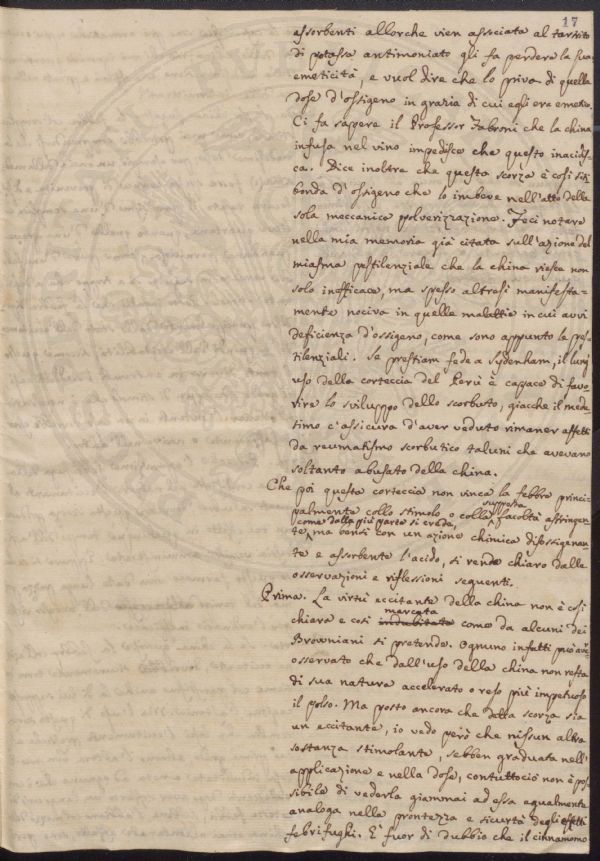 17
assorbenti allorche vien associata al tartrito
di potassa antimoniato gli fa perdere la sua
emeticità, e vuol dire che lo priva di quella
dose d'ossigeno in grazia di cui egli era emetico.
Ci fa sapere il Professor Fabroni che la china
infusa nel vino impedisce che questo inacidis-
ca. Dice inoltre che questa scorza è così siti-
bonda d'ossigeno che lo imbeve nell'atto della
sola meccanica polverizzazione. Feci notare
nella mia memoria già citata sull'azione del
miasma pestilenziale che la china riesca non
solo inefficace, ma spesso altresì manifesta-
mente nociva in quelle malattie in cui avvi
deficienza d'ossigeno, come sono appunto le pes-
tilenziali. Se prestiam fede a Sydenham, il lung'
uso della corteccia del Perù è capace di favo-
rire lo sviluppo dello scorbuto, giacche il mede-
simo c'assicura d'aver veduto rimaner affetti
da reumatismo scorbutico taluni che avevano
soltanto abusato della china.
Che poi questa corteccia non vinca la febbre princi-
palmente collo stimolo o colla supposta facoltà astringen-
te, come dalla più parte si crede, ma bensì con un azione chimica disossigenan-
te e assorbente l'acido, si rende chiaro dalle
osservazioni e riflessioni seguenti.
Prima. La virtù eccitante della china non è così
chiara e così indubitata marcata come da alcuni dei
Browniani si pretende. Ognuno infatti può aver
osservato che dall'uso della china non resta
di sua natura accelerato o reso più impetuoso
il polso. Ma posto ancora che detta scorza sia
un eccitante, io vedo però che nissun altra
sostanza stimolante, sebben graduata nell'
applicazione e nella dose, contuttociò non è pos-
sibile di vederla giammai ad essa egualmente
analoga nella prontezza e sicurtà degli effetti
febrifughi. È fuor di dubbio che il cinnamomo